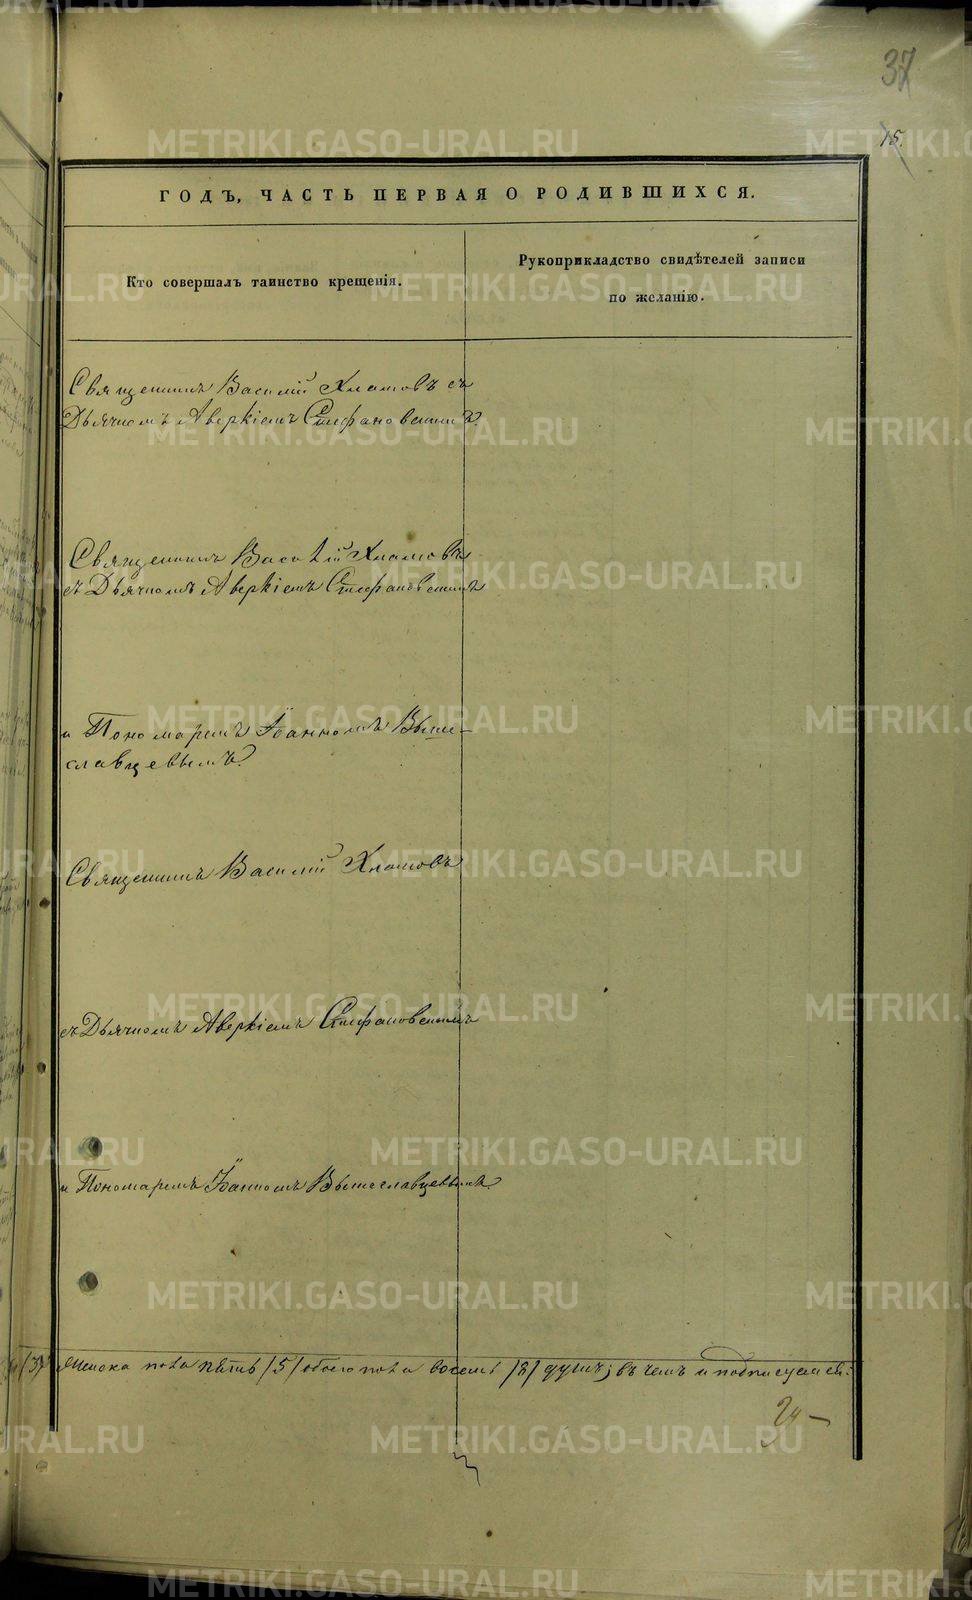 37
15.
ГОДЪ, ЧАСТЬ ПЕРВАЯ О РОДИВШИХСЯ.
Кто совершалъ таинство крещенія.
Рукоприкладство свидѣтелей записи
по желанію.
Священникъ Василій Хлатовъ съ
Дьячкомъ Аверкіемъ Стефановскимъ.
Священникъ Василій Хлатовъ
съ Дьячкомъ Аверкіемъ Стефановскимъ
и Пономаремъ Іоанномъ Выше-
славцевымъ.
Священникъ Василій Хлатовъ
съ Дьячкомъ Аверкіемъ Стефановскимъ
и Пономаремъ Іоанномъ Вышеславцевымъ.
/3/ женска пола пять /5/ обоего пола восемь /8/ душъ; въ чемъ и подписуемся:
METRIKI.GASO-URAL.RU